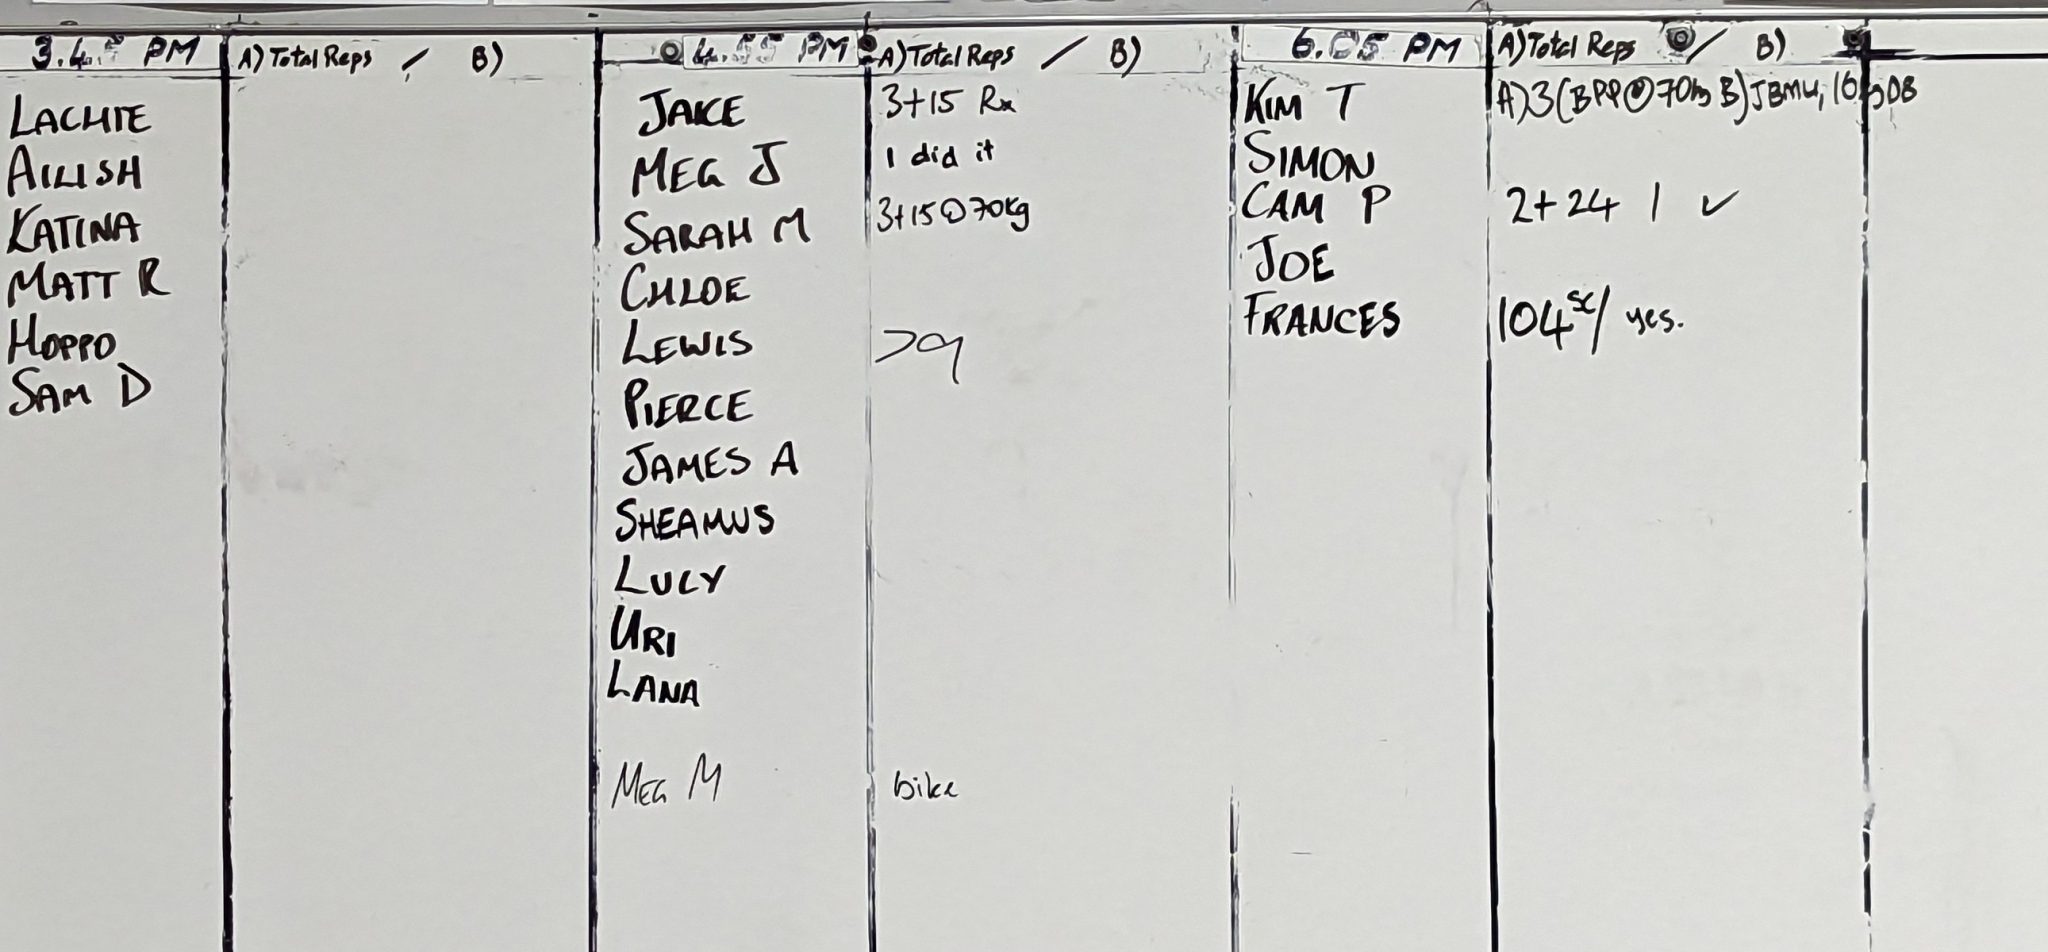 PM A) Total Reps / B)
LACHIE
AILISH
KATINA
MATT R
HOPPO
SAM D
4.55 PM A) Total Reps / B)
JAKE 3+15 Rx
MEG J I did it
SARAH M 3+15@70kg
CHLOE
LEWIS
PIERCE
JAMES A
SHEAMUS
LUCY
URI
LANA
MEG M bike
6.05 PM A) Total Reps / B)
KIM T A) 3 (BPP@70kg B) JBMU, DB
SIMON
CAM P 2+24 | ✓
JOE
FRANCES 104 sc/ yes.